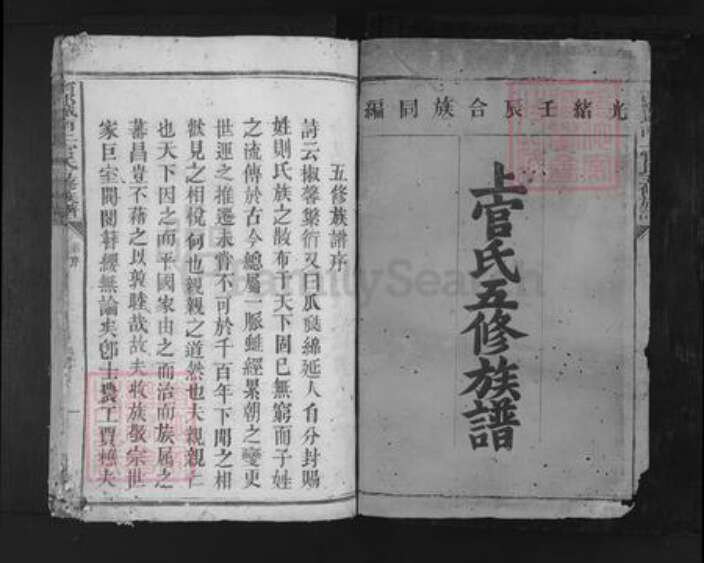 光緒壬辰合族同編
上官氏五修族譜
五修族譜序
詩云椒馨蕃衍又曰瓜瓞綿延人自分封賜
姓則氏族之散布于天下固已無窮而子姓
之流傳於古今總屬一脈雖經累朝之變更
世運之推遷未嘗不可於千百年下聞之相
歡見之相悅何也親親之道然也夫親親仁
也天下因之而平國家由之而治而族属之
蕃昌豈不藉之以敦睦哉故夫收族敬宗世
家巨室閥閱簪纓無論矣卽士農工賈無夫
FamilySearch